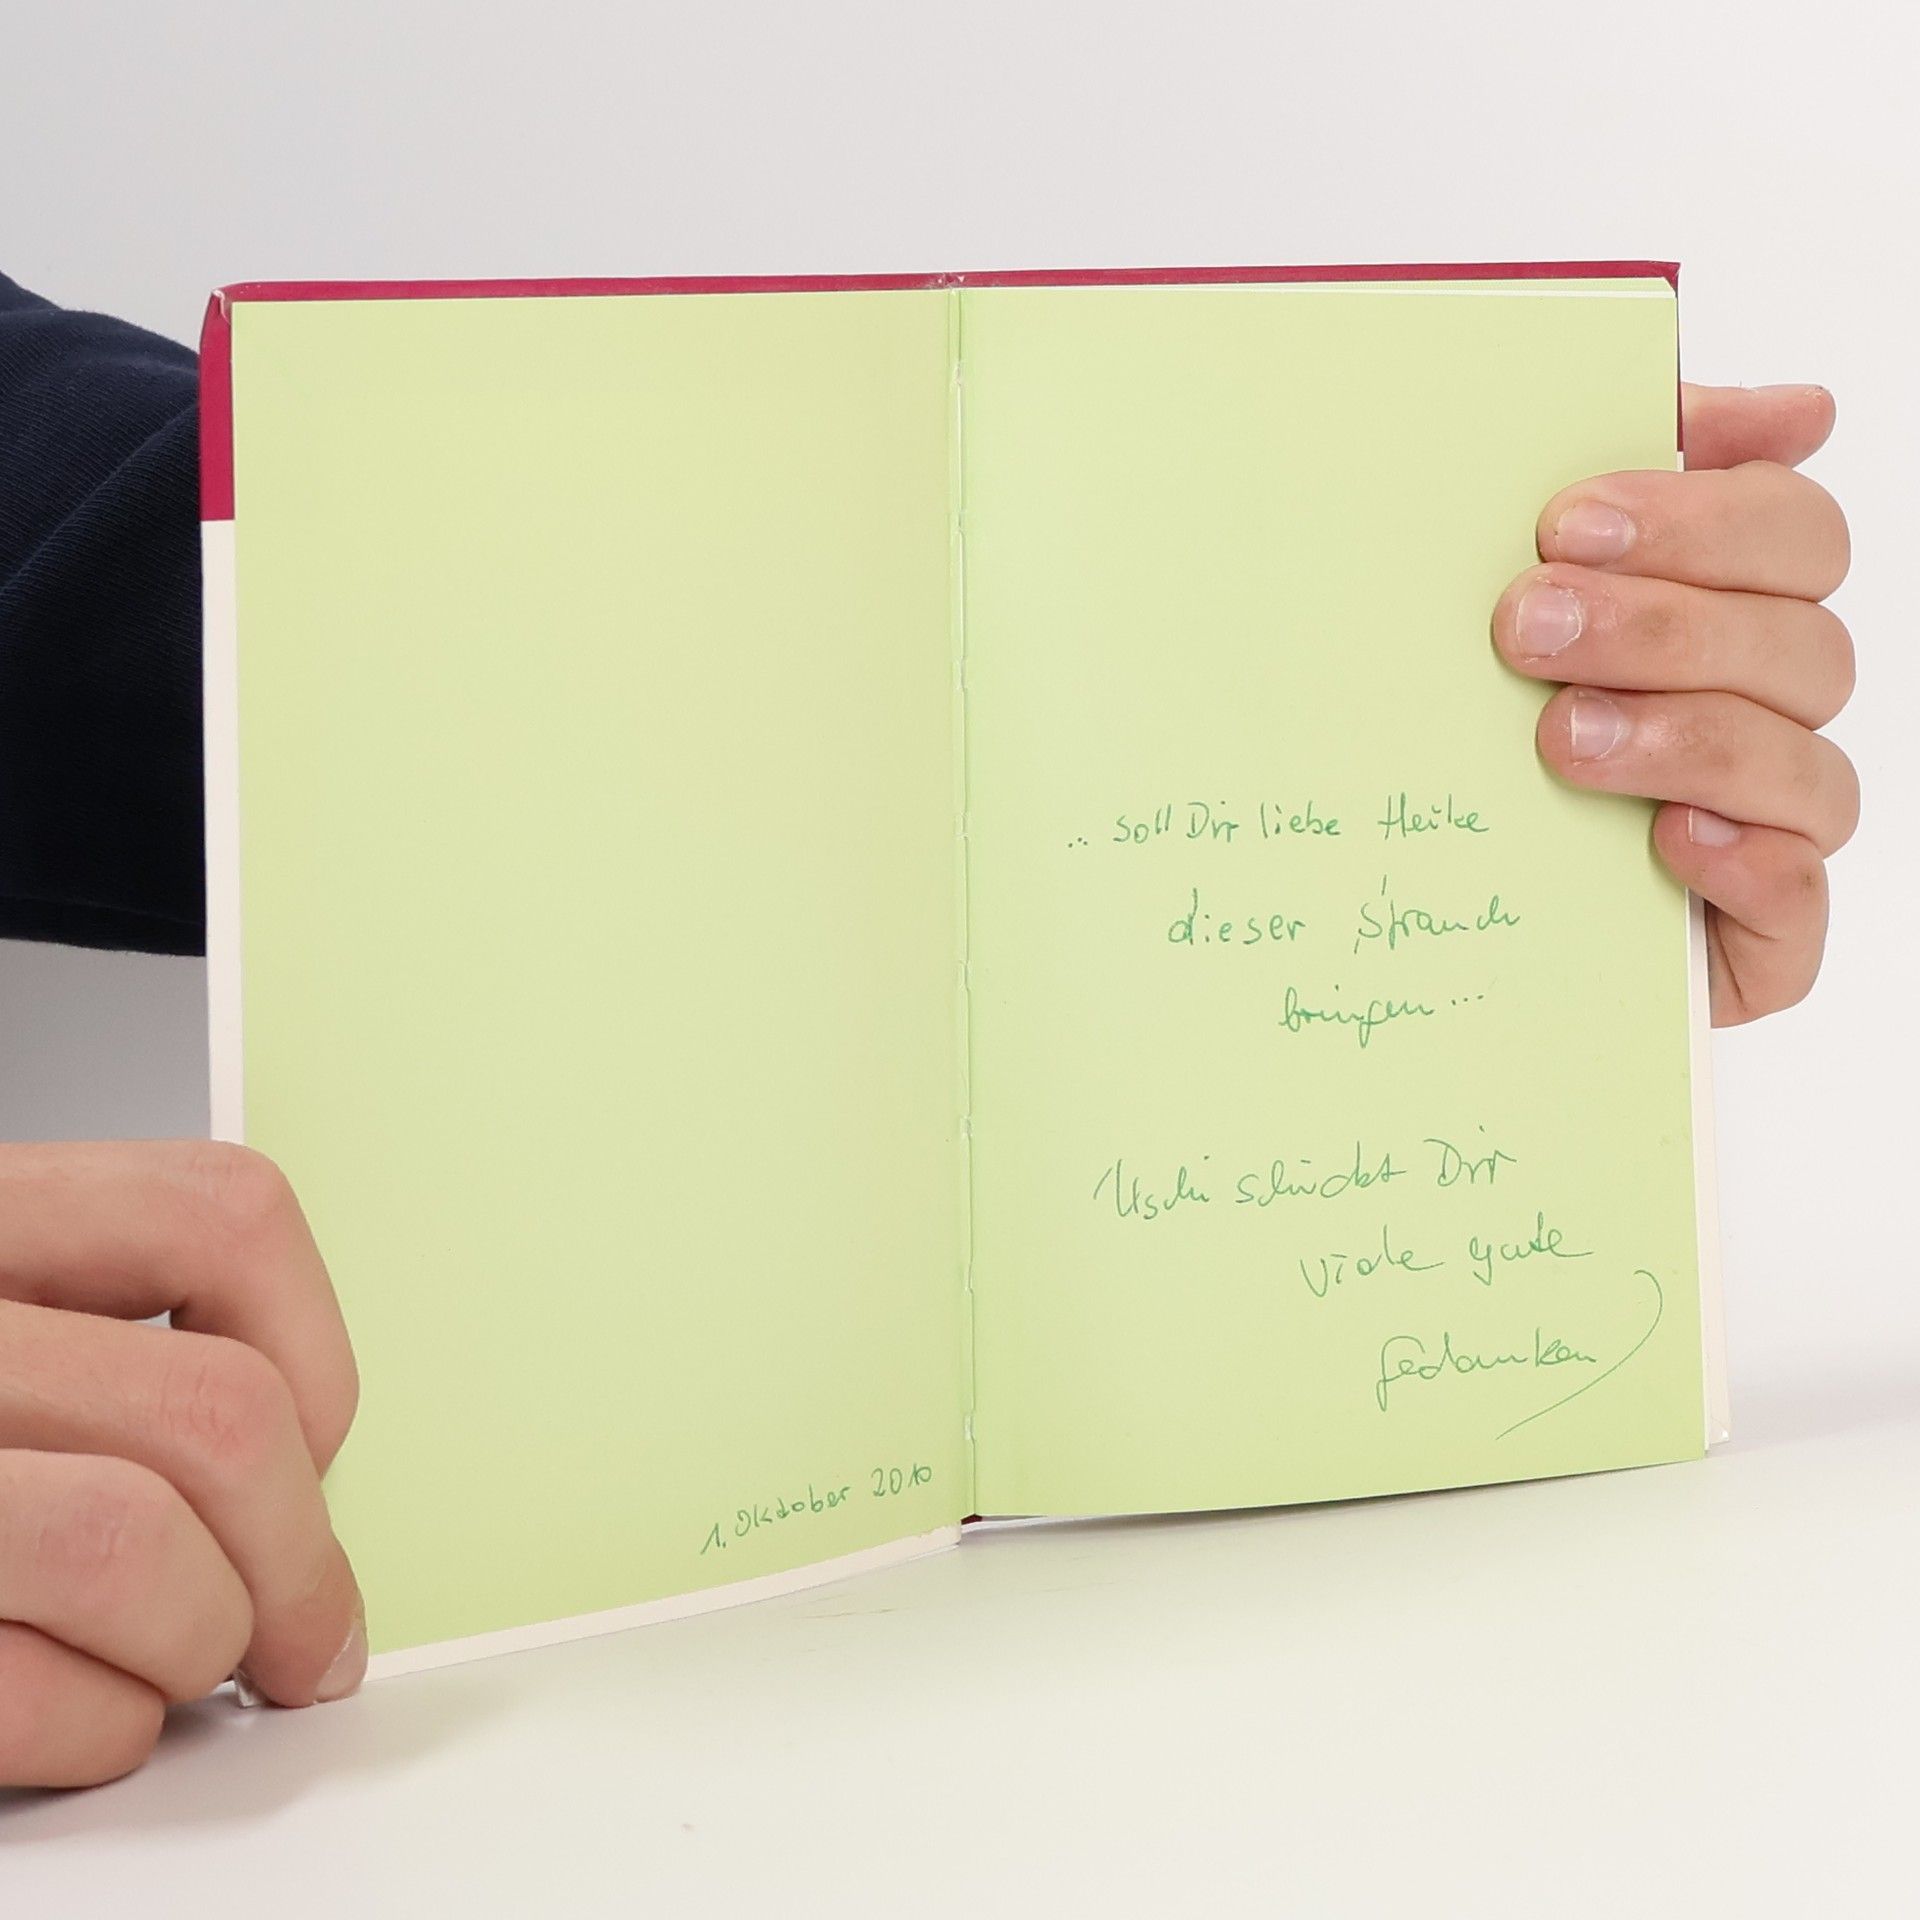 1. Oktober 2010
... soll Dir liebe Heike
dieser Strauch
bringen ...
Uschi schickt Dir
viele gute
Gedanken